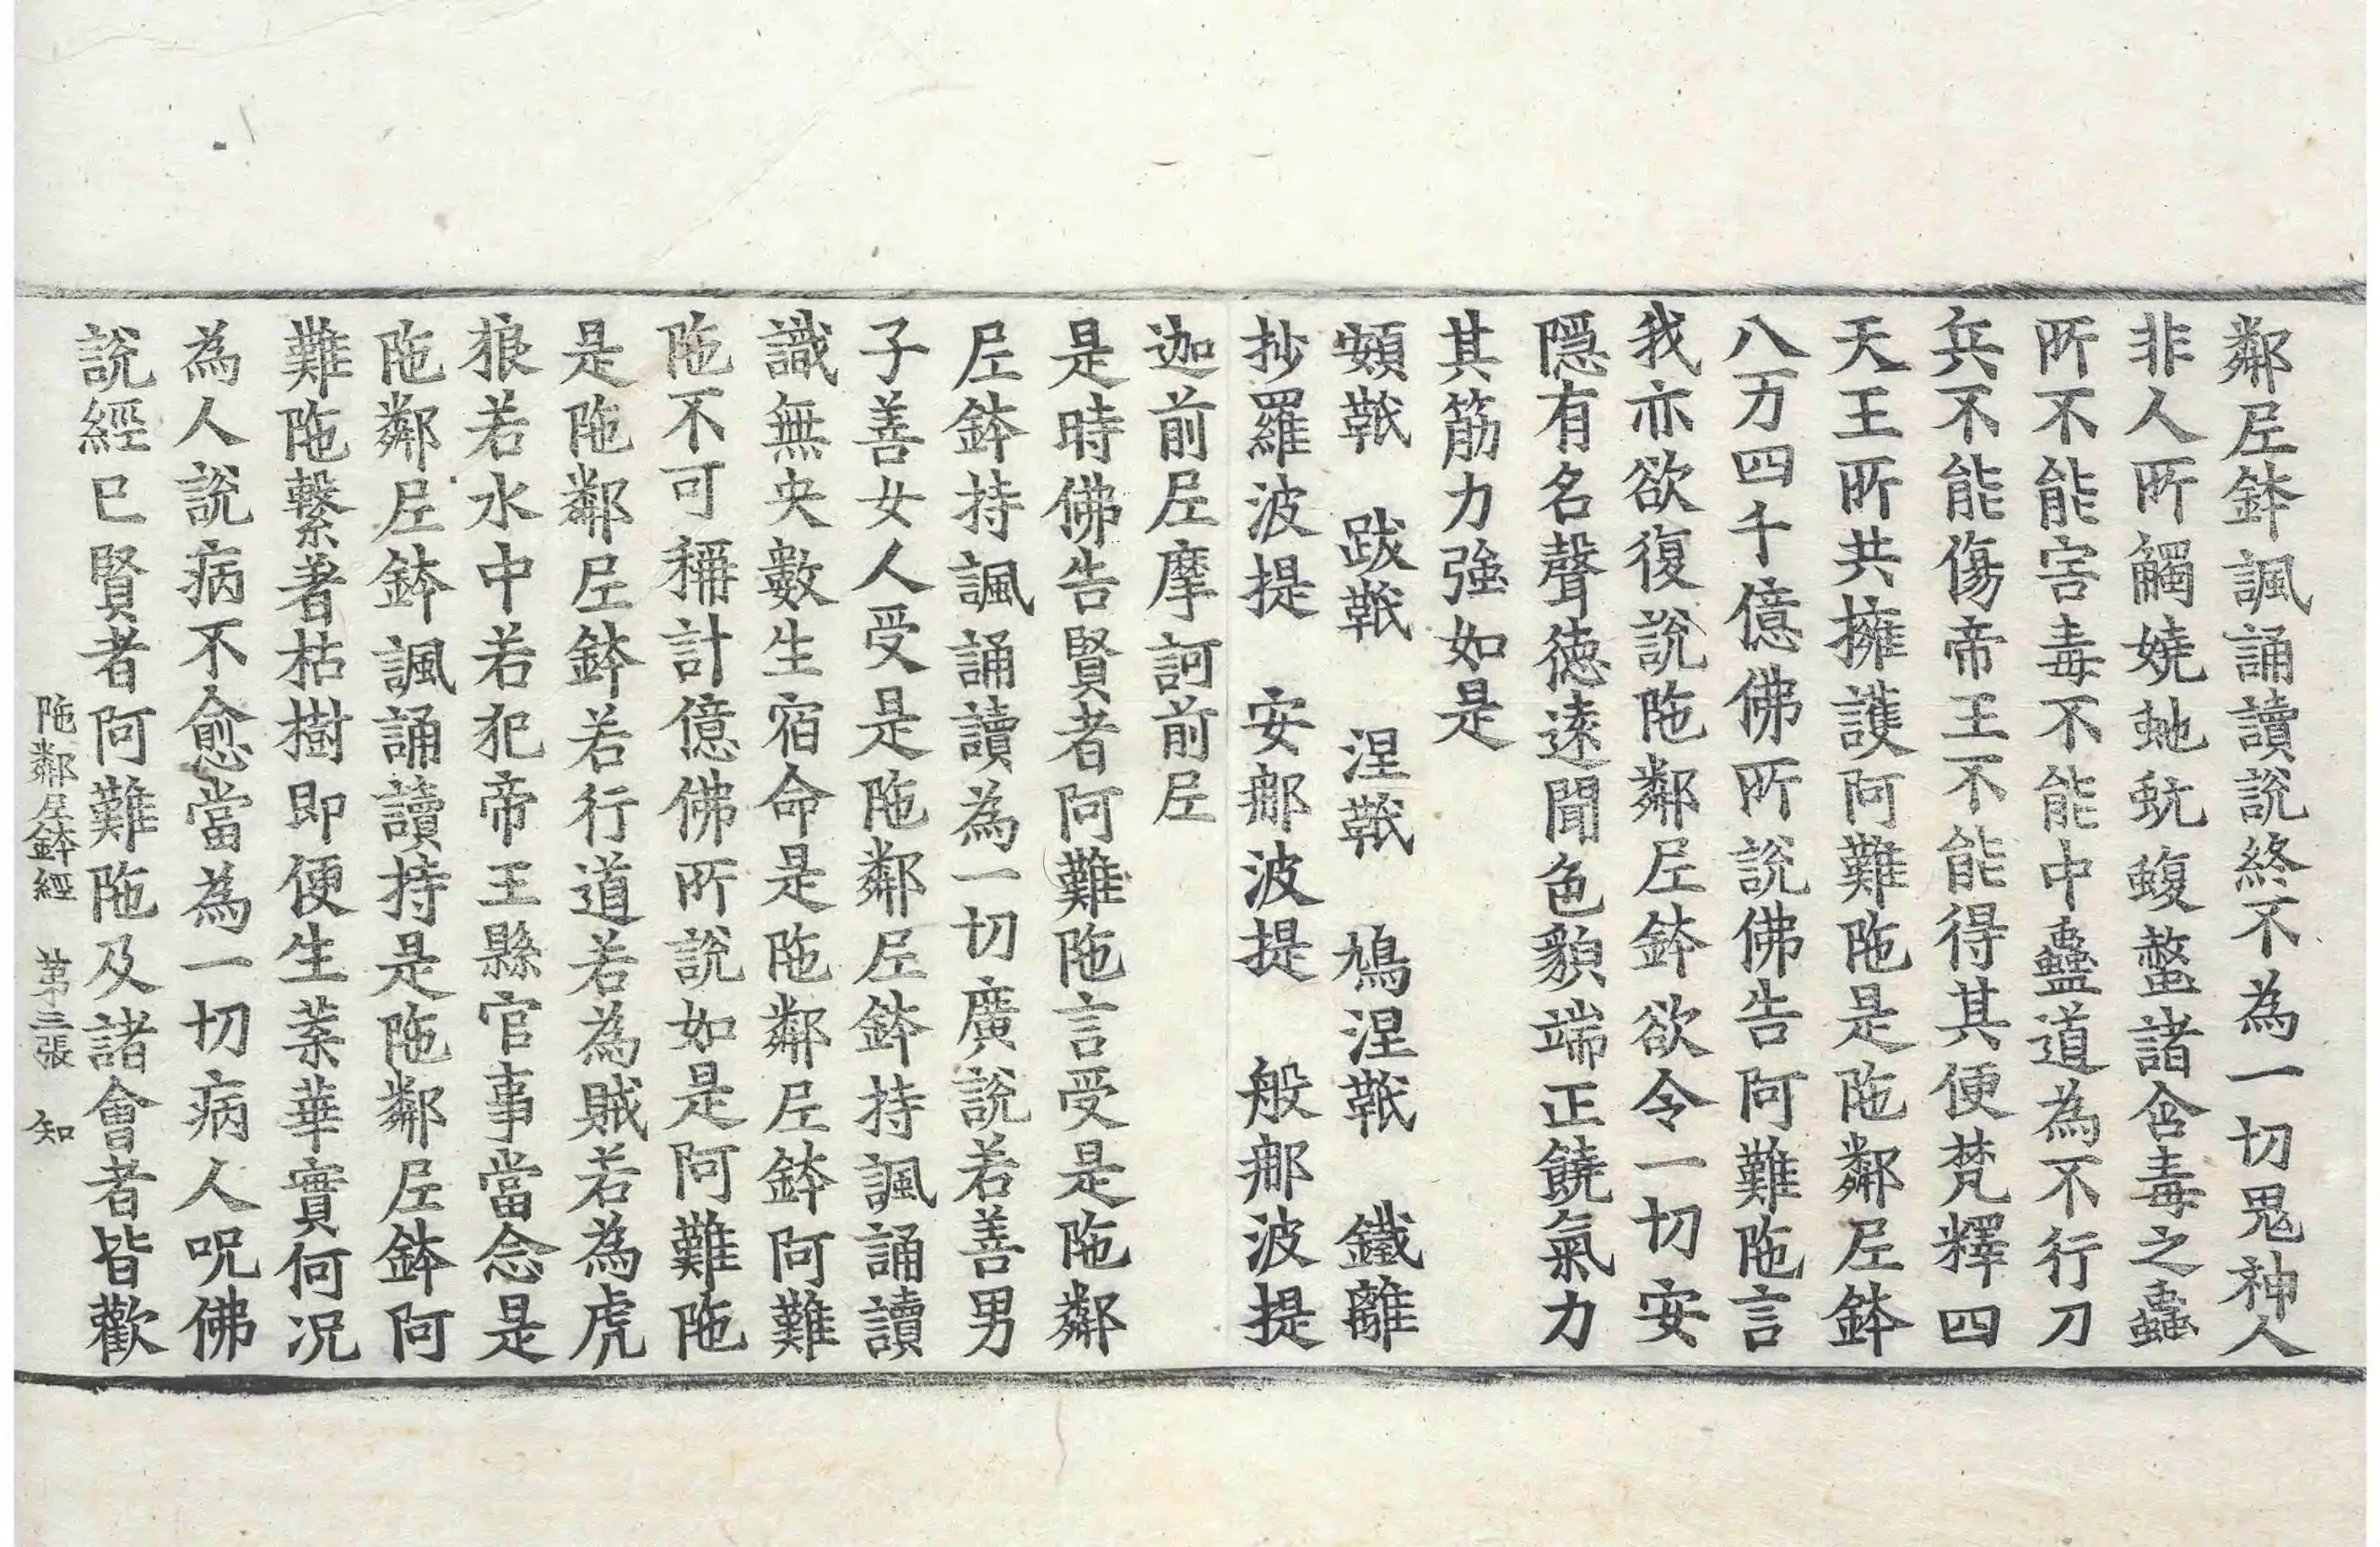 鄰𡰱鉢諷誦讀說終不為一切鬼神人
非人所觸嬈虵蚖蝮螫諸含毒之蟲
所不能害毒不能中蠱道為不行刀
兵不能傷帝王不能得其便梵釋四
天王所共擁護阿難陁是陁鄰𡰱鉢
八万四千億佛所說佛告阿難陁言
我亦欲復說陁鄰𡰱鉢欲令一切安
隱有名聲德遠聞色貌端正饒氣力
其筋力強如是
頞䩭　跋䩭　涅䩭　鳩涅䩭　鐵離
抄羅波提　安那波提　般那波提
迦前𡰱摩訶前𡰱
是時佛告賢者阿難陁言受是陁鄰
𡰱鉢持諷誦讀為一切廣說若善男
子善女人受是陁鄰𡰱鉢持諷誦讀
識無央數生宿命是陁鄰𡰱鉢阿難
陁不可稱計億佛所說如是阿難陁
是陁鄰𡰱鉢若行道若為賊若為虎
狼若水中若犯帝王縣官事當念是
陁鄰𡰱鉢諷誦讀持是陁鄰𡰱鉢阿
難陁繫著枯樹即便生葉華實何況
為人說病不愈當為一切病人呪佛
說經已賢者阿難陁及諸會者皆歡
陁鄰𡰱鉢經　第三張　知